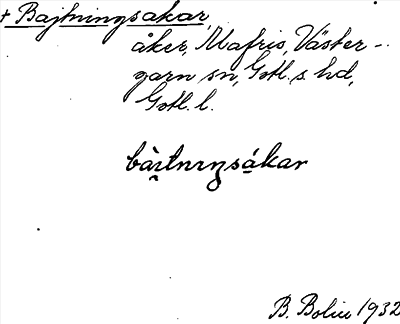 + Bajtningsakar,
åker, Mafris, Väster-
garn sn, Gotl. s. hd,
Gotl. l.
bài̯tnıŋsákar
B. Bolin 1932